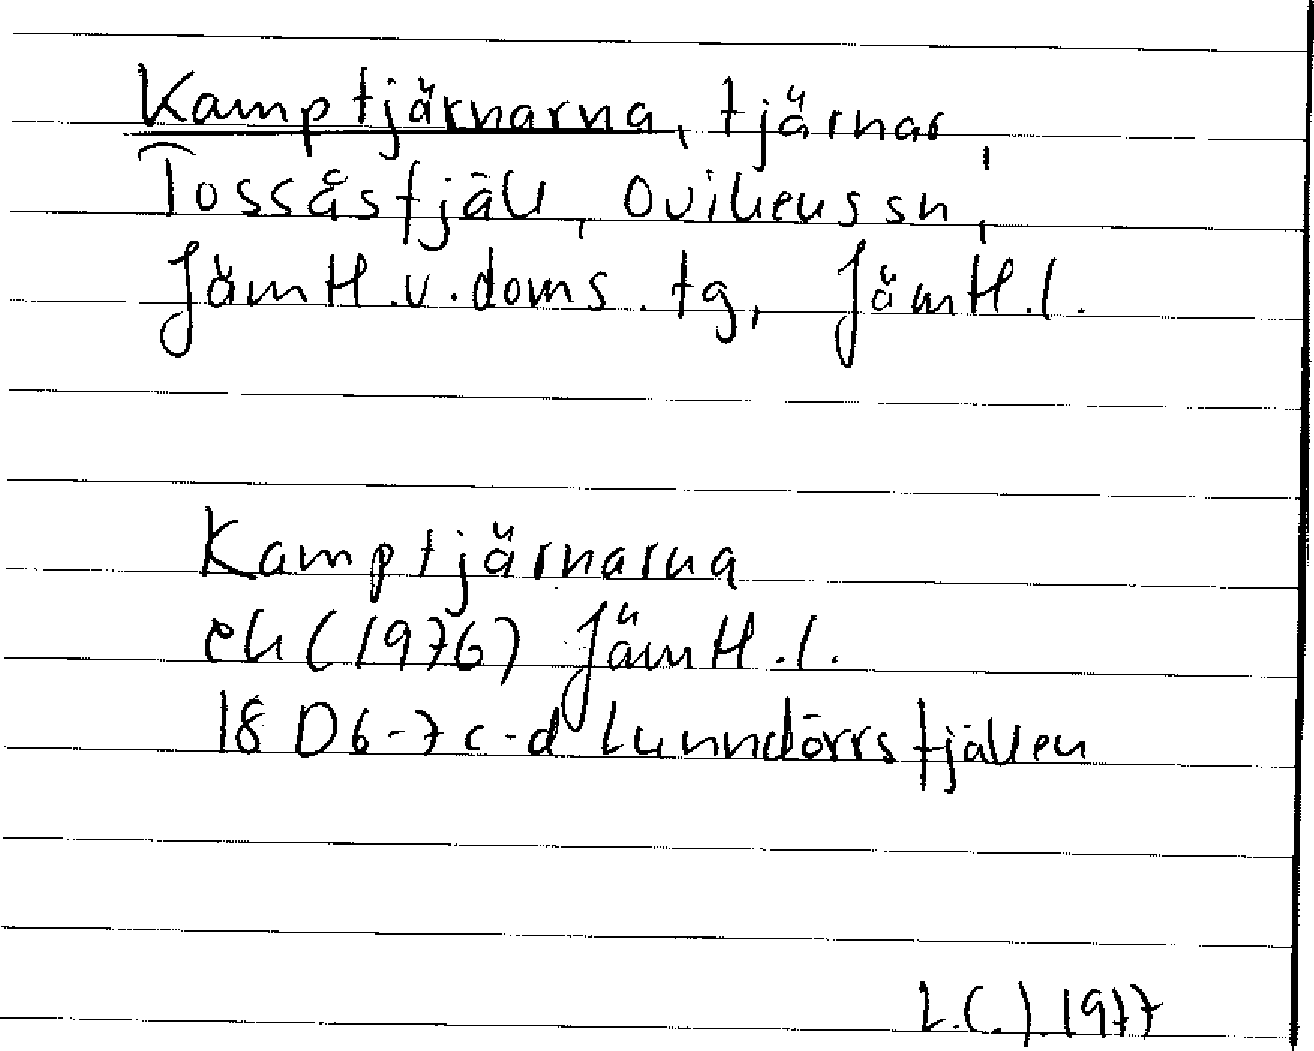 Kamptjärnarna, tjärnar,
Tossåsfjäll, Ovikens sn,
Jämtl.v.doms.tg, Jämtl.l.
Kamptjärnarna
ek (1976) Jämtl.l.
18 D 6-7 c-d Lunndörrsfjällen
L.C.J. 1977